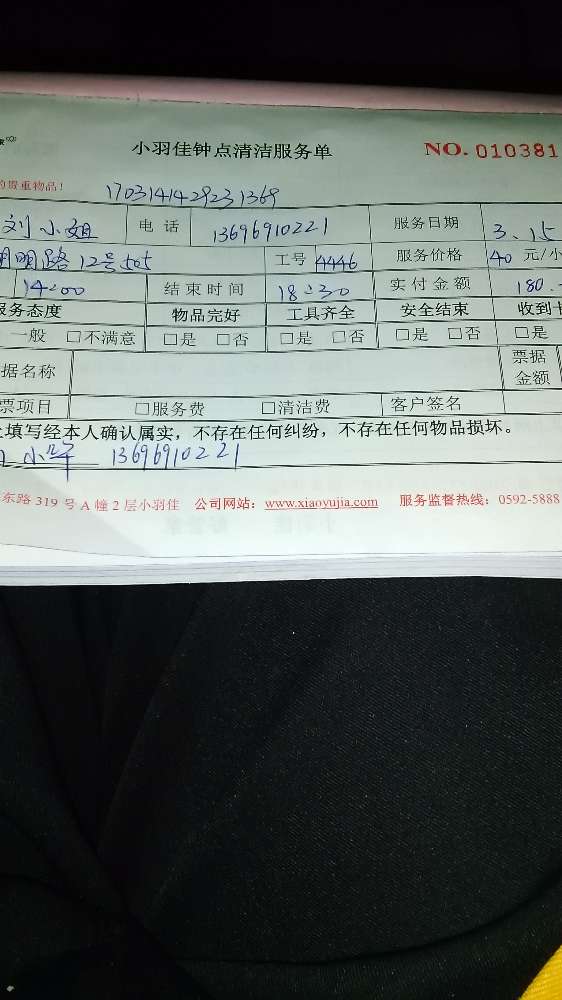 小羽佳钟点清洁服务单 NO. 010381
的贵重物品!
1703141429231369
刘小姐 电话 13696910221 服务日期 3.15
明明路12号505 工号 4446 服务价格 40 元/小
14:00 结束时间 18:30 实付金额 180.-
服务态度 物品完好 工具齐全 安全结束 收到卡
一般 □不满意 □是 □否 □是 □否 □是 □否 □是
据名称 票据金额
票项目 □服务费 □清洁费 客户签名
上填写经本人确认属实，不存在任何纠纷，不存在任何物品损坏。
13696910221
东路 319 号 A 幢 2 层小羽佳 公司网站：www.xiaoyujia.com 服务监督热线：0592-5888